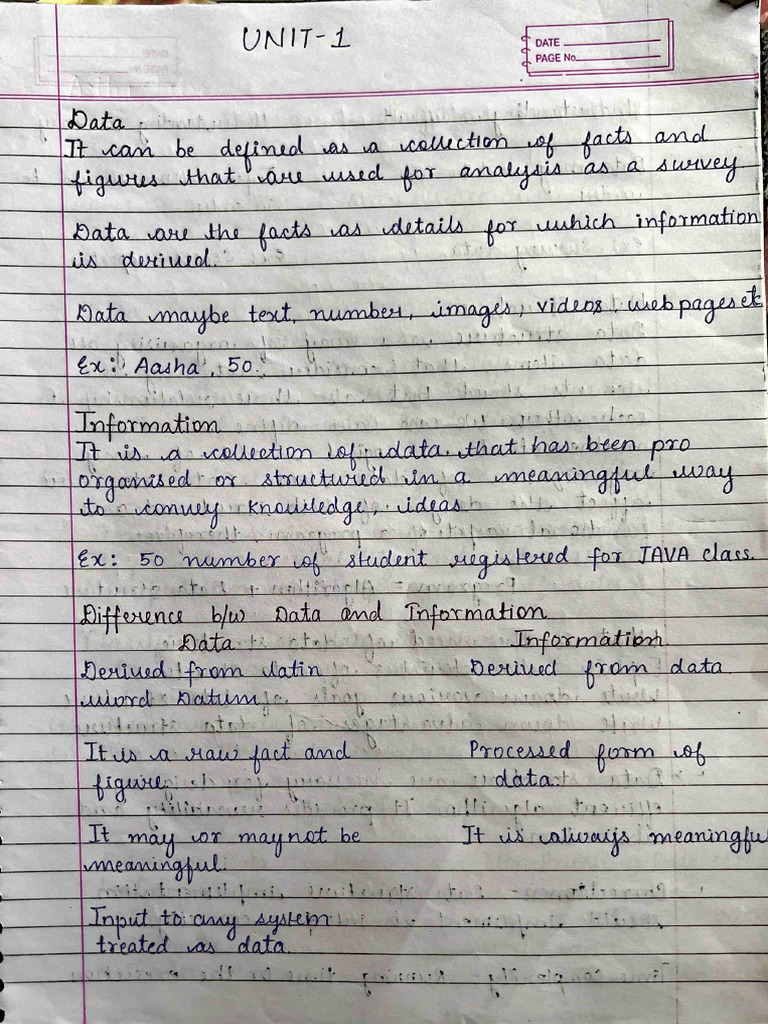 UNIT-1
DATE
PAGE No.
Data
It can be defined as a collection of facts and
figures that are used for analysis as a survey
Data are the facts as details for which information
is derived.
Data maybe text, number, images, videos, web pages etc
Ex: Aasha, 50.
Information
It is a collection of data that has been pro
organised or structured in a meaningful way
to convey knowledge, ideas
Ex: 50 number of student registered for JAVA class.
Difference b/w Data and Information
Data Information
Derived from latin Derived from data
word Datum
It is a raw fact and Processed form of
figure data.
It may or may not be It is always meaningful
meaningful.
Input to any system
treated as data.